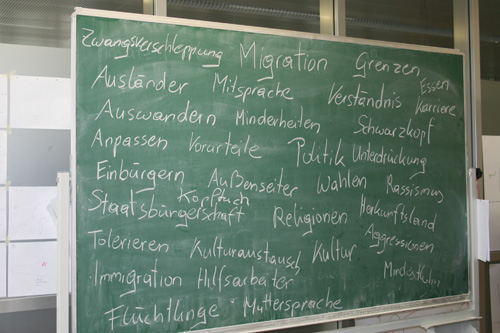 Zwangsverschleppung Migration Grenzen
Ausländer Mitsprache Verständnis Essen
Karriere
Auswandern Minderheiten Schwarzkopf
Anpassen Vorurteile Politik Unterdrückung
Einbürgern Außenseiter Wahlen Rassismus
Kopftuch
Staatsbürgerschaft Religionen Herkunftsland
Tolerieren Kulturaustausch Kultur Aggressionen
Immigration Hilfsarbeiter
Flüchtlinge Muttersprache